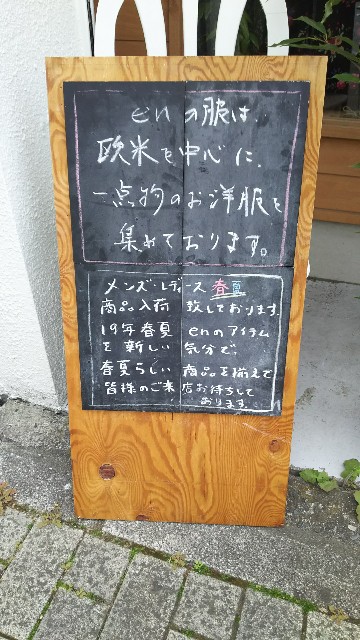 enの服は、
欧米を中心に、
一点物のお洋服を
集めております。
メンズ・レディース 春夏
商品入荷 致しております。
19年春夏 enのアイテム
を新しい 気分で、
春夏らしい 商品を揃えて
皆様のご来店お待ちして
おります。